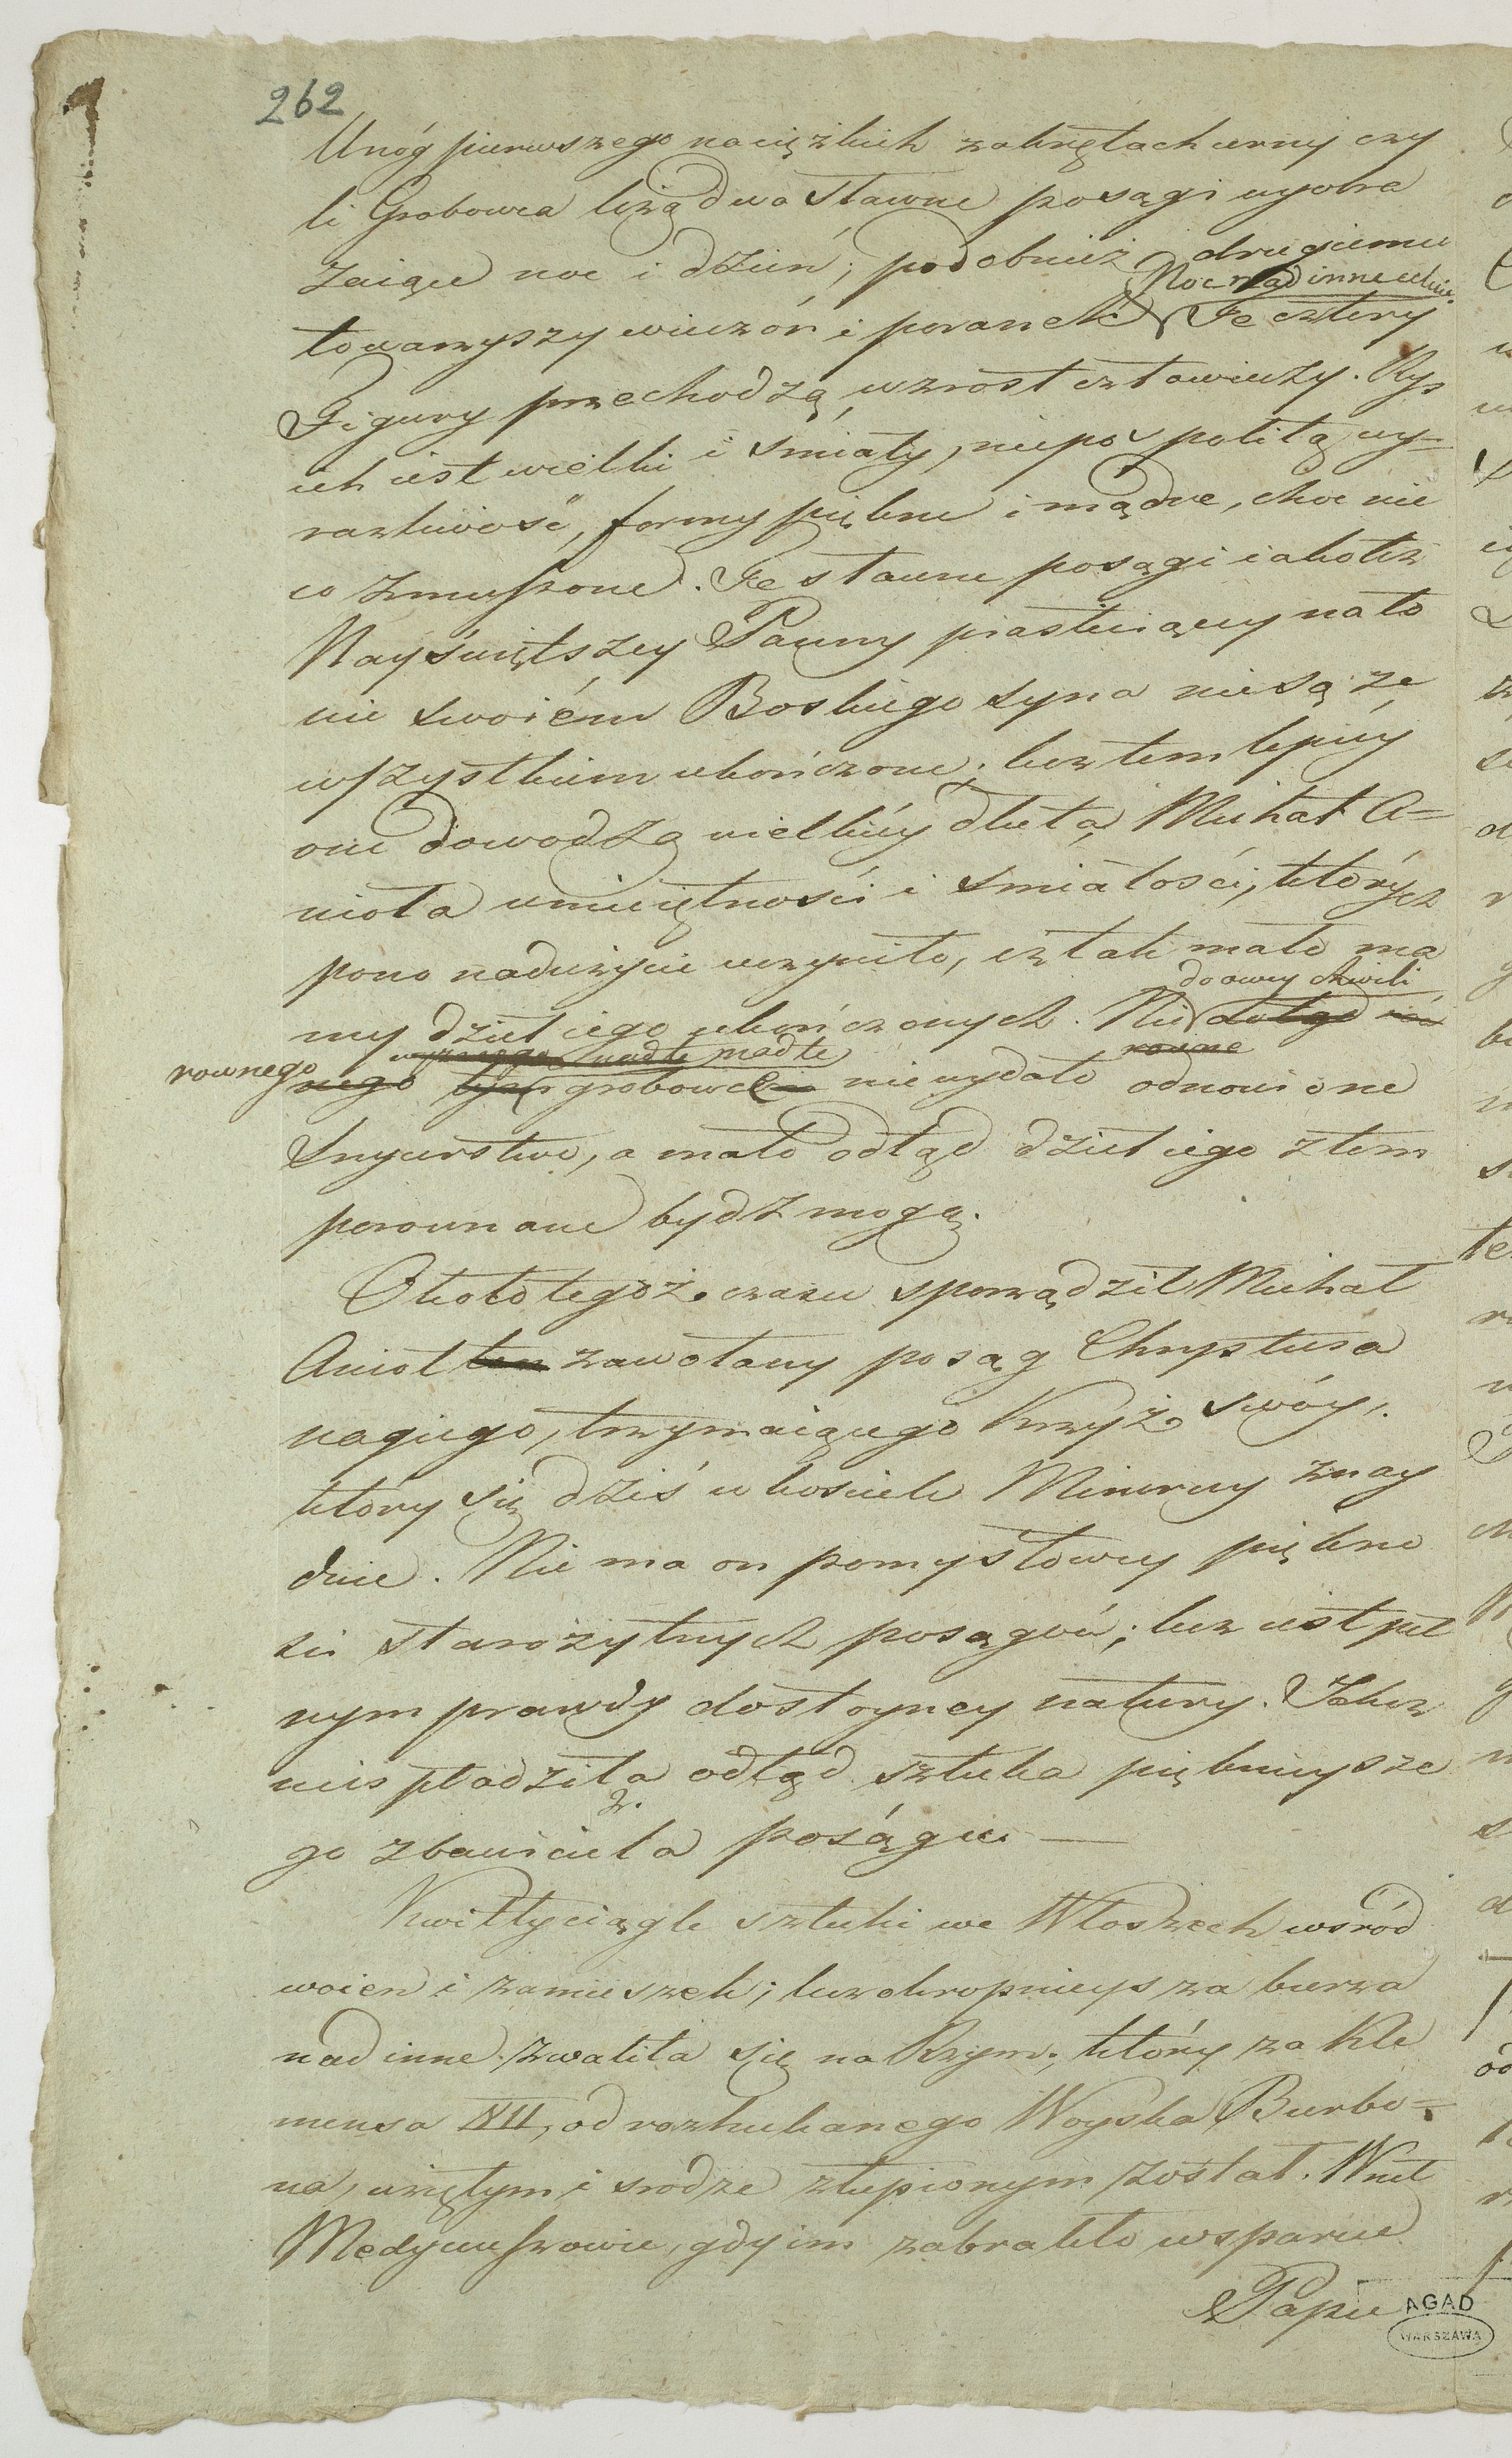 262
U nóg pierwszego na ciężkich zakrętach urny czy
li Grobowca leżą dwa sławne posągi wyobra
żaiące noc i dzień; podobnież drugiemu
Noc nad inne celuie.
towarzyszy wieczór i poranek. Te cztery
Figury przechodzą wzrost człowieczy. Rys
ich iest wielki i śmiały, niepospolitą wy-
razliwość, formy piękne i mądre, choc nie
co zmuszone. Te sławne posągi iakoteż
Nayświętszey Panny piastuiącey na ło
nie swoiém Boskiego syna nie są ze
wszystkiem ukończone; lecz tem lepiéy
one dowodzą wielkiéy dłuta Michał A=
nioła umieiętności i smiałości, których
pono nadużycie uczyniło, iż tak mało ma
do owey chwili
my dzieł iego ukończonych. Nic dotąd
rownego nego tych grobowce nie wydało odnowione
wyższego nadte nadte
rowne
Snycerstwo, a mało odtąd dzieł iego z tem
porownane bydź mogą.
Około tegoż czasu sporządził Michał
Anioł ten zawołany posąg Chrystusa
nagiego, trzymaiącego Krzyż swóy,
który się dziś w kosciele Minerwy znay
duie. Nie ma on pomysłowey piękno
ści starożytnych posągów; lecz iest peł
nym prawdy dostoyney natury. Lecz
nie spłodziła odtąd sztuka pięknieysze
go zbawiciela posągu. —
Kwitły ciągle sztuki we Włoszech wsród
woien i zamieszek; lecz okropnieysza burza
nad inne zwaliła się na Rzym; który za Kle
mensa XII, od rozhukanego Woyska Burbo=
na, wziętym i srodze złupionym został. Wnet
Medyceuszowie, gdy im zabrakło wsparcie
Papie
AGAD
WARSZAWA